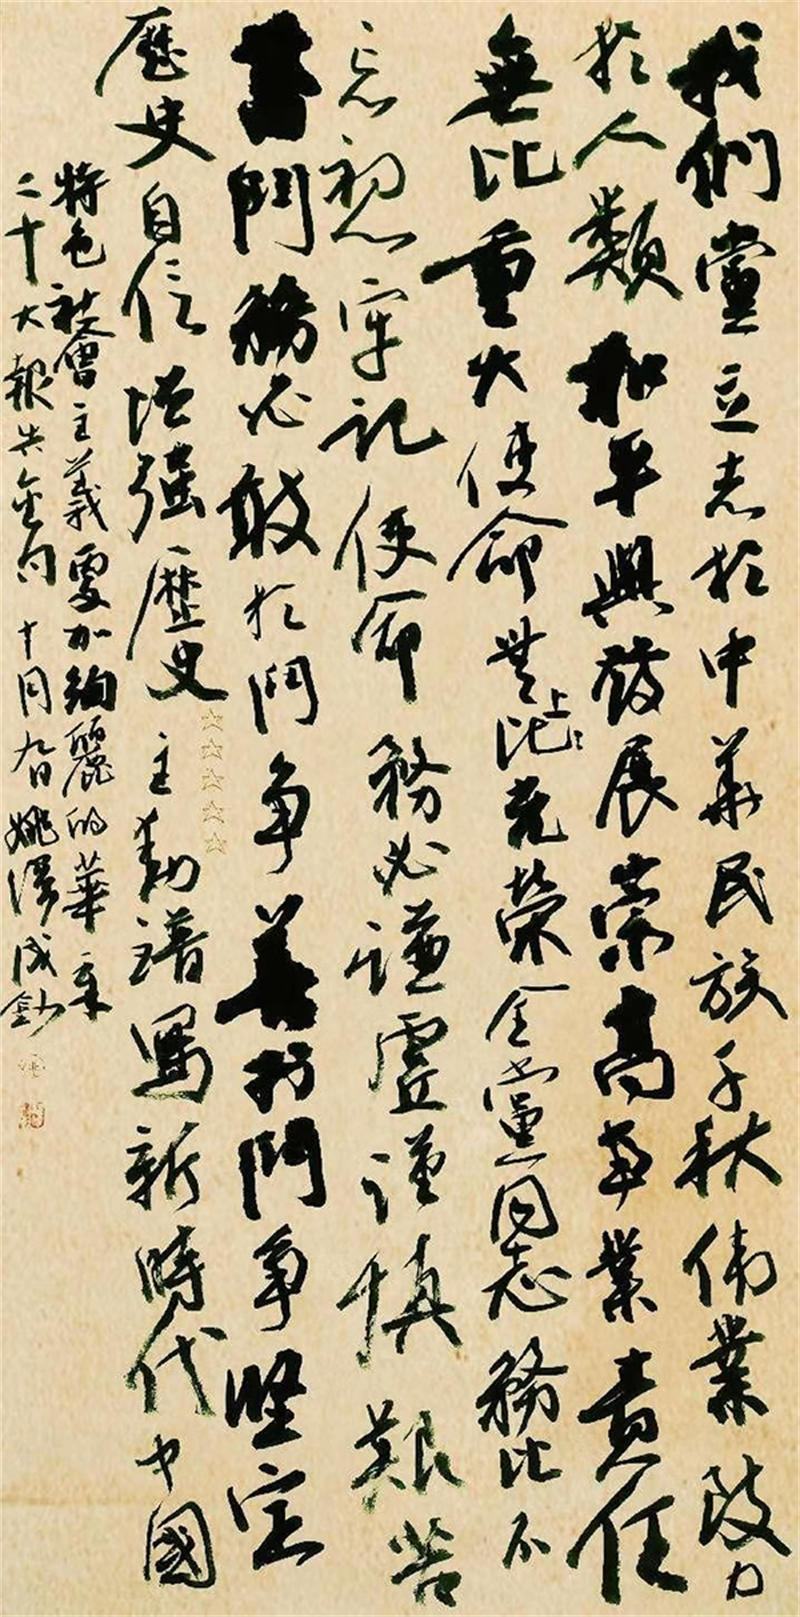 我們黨立志於中華民族千秋偉業致力
於人類和平與發展崇高事業責任
無比重大使命無比上光榮全黨同志務比不
忘初心牢記使命務必謙虛謹慎艱苦
奮鬥務必敢於鬥爭善於鬥爭堅定
歷史自信增强歷史主動譜寫新時代中國
特色社會主義更加絢麗的華章
二十大報告金句十月姚澤成鈔